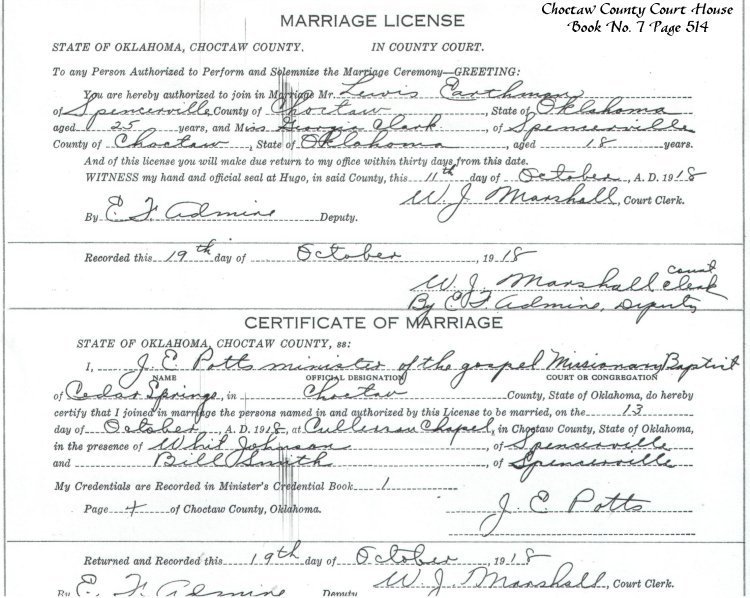 Choctaw County Court House
Book No. 7 Page 514
MARRIAGE LICENSE
STATE OF OKLAHOMA, CHOCTAW COUNTY. IN COUNTY COURT.
To any Person Authorized to Perform and Solemnize the Marriage Ceremony—GREETING:
You are hereby authorized to join in Marriage Mr. Lewis Earthman
of Spencerville County of Choctaw, State of Oklahoma
aged 25 years, and Miss Georgia Clark, of Spencerville
County of Choctaw, State of Oklahoma, aged 18 years.
And of this license you will make due return to my office within thirty days from this date.
WITNESS my hand and official seal at Hugo, in said County, this 11th day of October, A. D. 1918
W. J. Marshall, Court Clerk.
By E F Admire Deputy.
Recorded this 19th day of October, 1918
W. J. Marshall Court Clerk
By E. F. Admire, Deputy
CERTIFICATE OF MARRIAGE
STATE OF OKLAHOMA, CHOCTAW COUNTY, ss:
I, J. E Potts minister of the gospel Missionary Baptist
NAME OFFICIAL DESIGNATION COURT OR CONGREGATION
of Cedar Springs, in Choctaw County, State of Oklahoma, do hereby
certify that I joined in marriage the persons named in and authorized by this License to be married, on the 13
day of October, A. D. 1918, at Chapel, in Choctaw County, State of Oklahoma,
in the presence of Whit Johnson, of Spencerville
and Bill Smith, of Spencerville
My Credentials are Recorded in Minister's Credential Book 1
Page of Choctaw County, Oklahoma.
J. E Potts
Returned and Recorded this 19th day of October, 1918
By E. F Admire Deputy W. J. Marshall, Court Clerk.